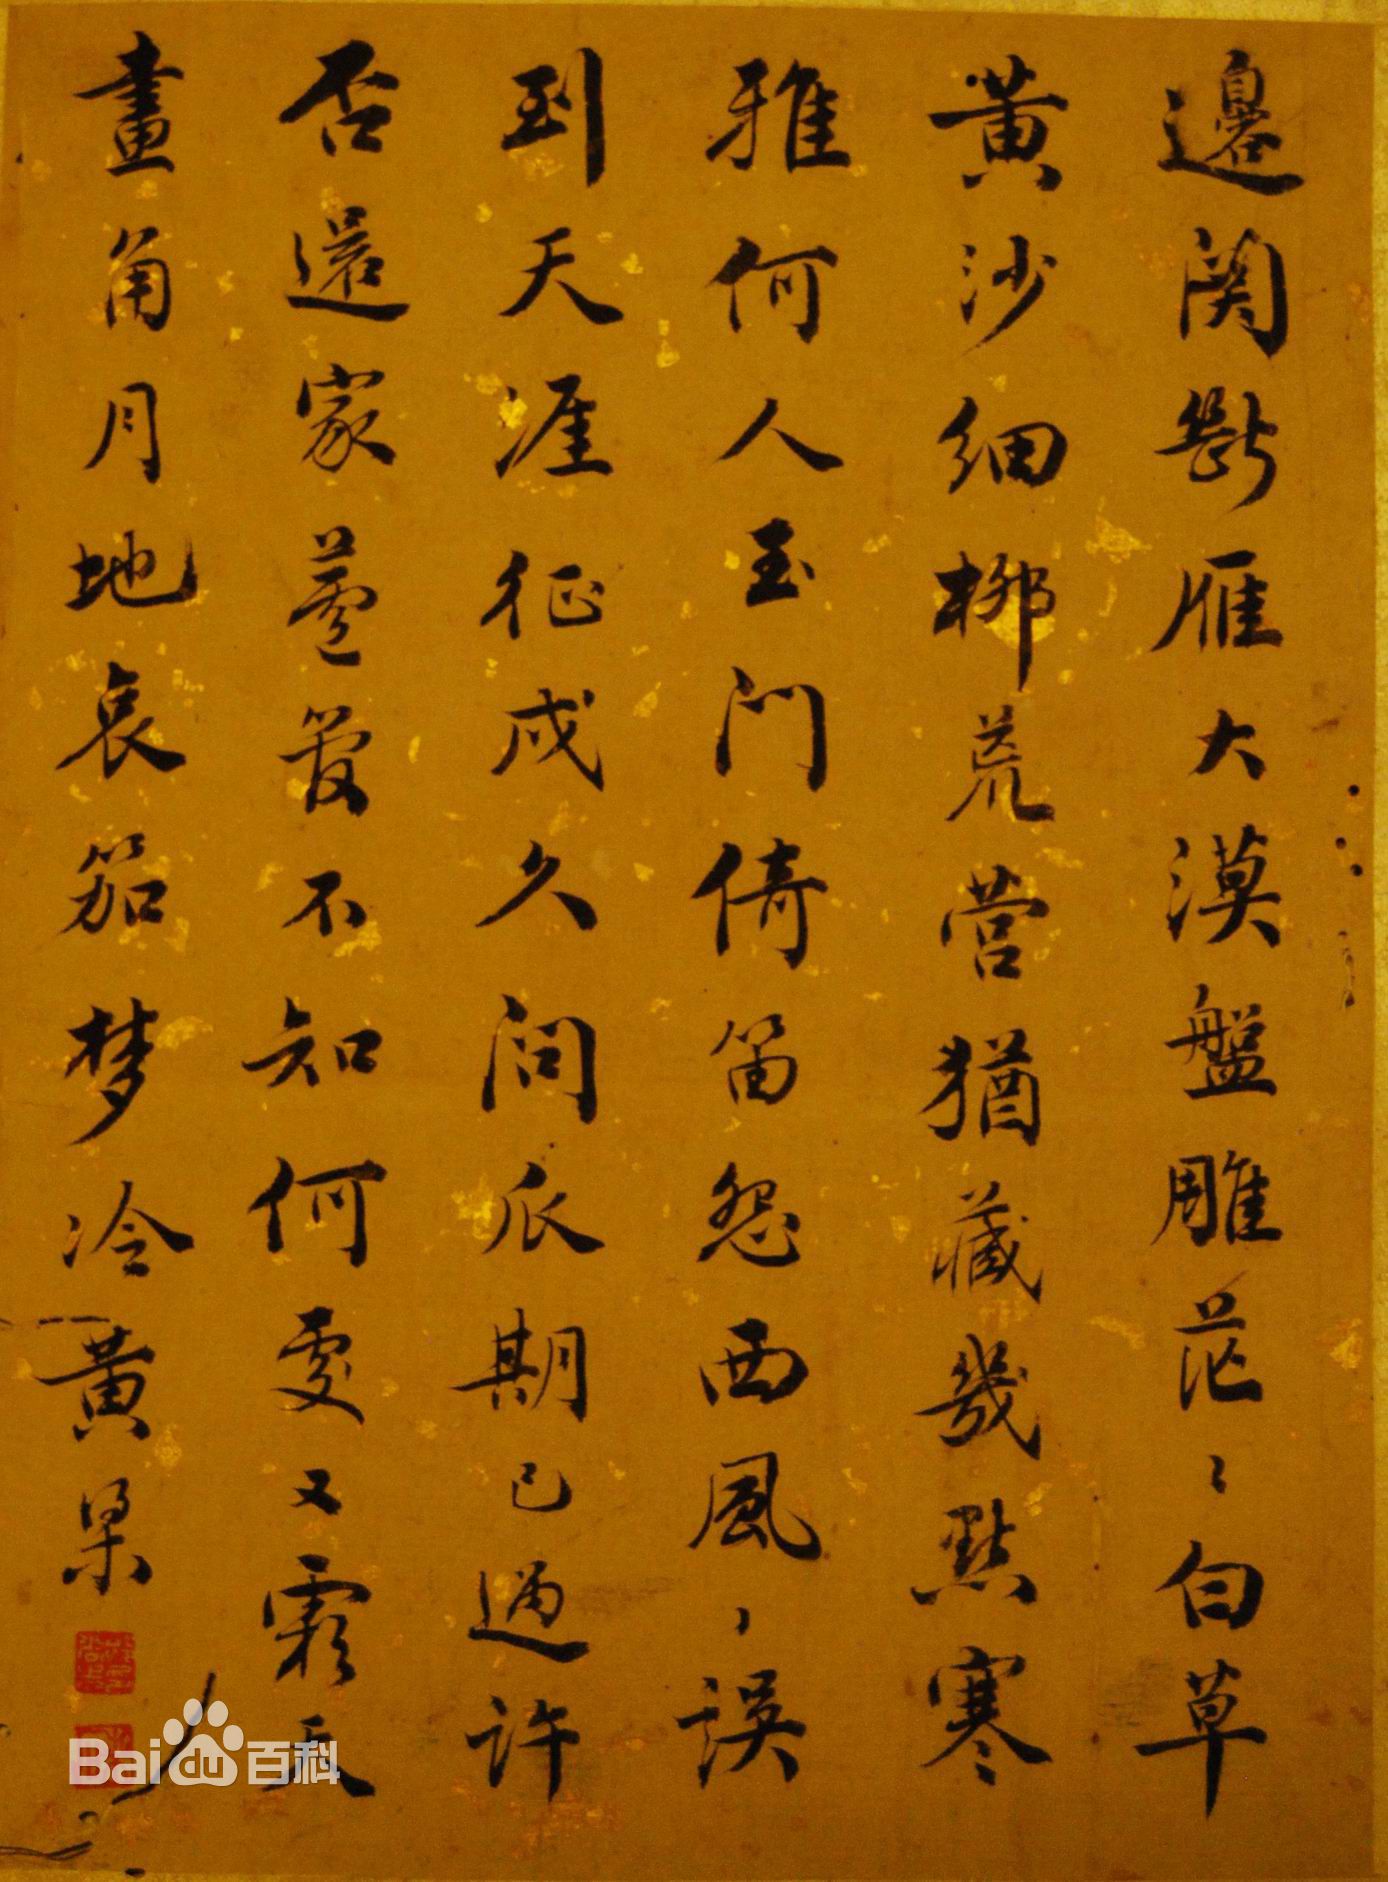 邊関斷雁大漠盤雕茫〻白草
黄沙細柳荒營猶藏幾點寒
雅何人玉門倚笛怨西風、誤
到天涯征戍久问瓜期已過許
否還家蒼鬢不知何處又霜天
畫角月地哀笳梦冷黄粱
Bai du 百科